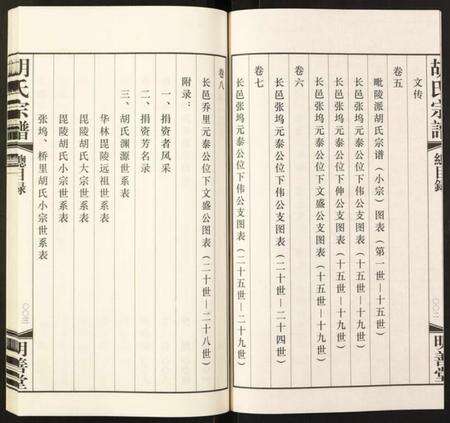 胡氏宗譜
總目錄
明善堂
文传
卷五
毗陵派胡氏宗谱（小宗）图表（第一世—十五世）
长邑张坞元泰公位下伟公支图表（十五世—十九世）
长邑张坞元泰公位下伸公支图表（十五世—十九世）
长邑张坞元泰公位下文盛公图表（十五世—十九世）
卷六
长邑张坞元泰公位下伟公支图表（二十世—二十四世）
卷七
长邑张坞元泰公位下伟公支图表（二十五世—二十九世）
卷八
长邑乔里元泰公位下文盛公图表（二十世—二十八世）
附录：
一、捐资者风采
二、捐资芳名录
三、胡氏渊源世系表
华林毘陵远祖世系表
毘陵胡氏大宗世系表
毘陵胡氏小宗世系表
张坞、桥里胡氏小宗世系表
胡氏宗譜
總目录
明善堂